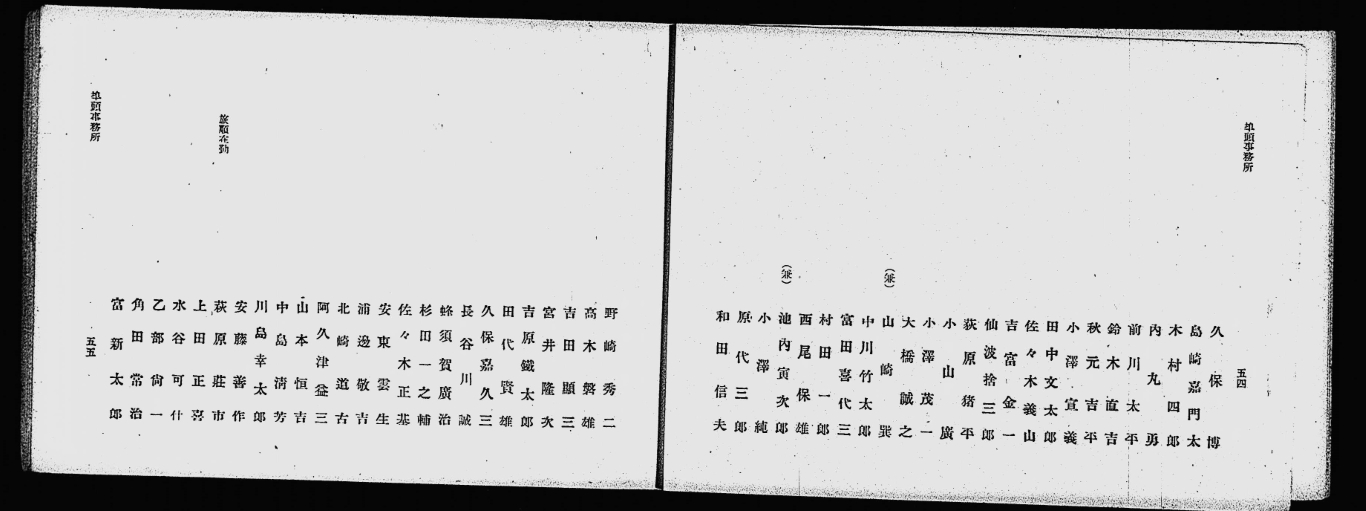 埠頭事務所
五四
久保博
島崎嘉門太
木村四郎
内丸勇
前川太平
鈴木直吉
秋元吉平
小澤宣義
田中文太郎
佐々木義山
吉富金一
仙波捨三郎
荻原猪平
小山廣
小澤茂一
大橋誠之
(兼) 山崎巽
中川竹太郎
富田喜代三
村田一郎
西尾保雄
(兼) 池内寅次郎
小澤純
原代三郎
和田信夫
野崎秀二
高木磐雄
吉田顯三
宮井隆次
吉原鐵太郎
田代賚雄
久保嘉久三
長谷川誠
蜂須賀廣治
杉田一之輔
佐々木正基
安東雲生
浦邊敬吉
北崎道古
阿久津益三
山本恒吉
中島清芳
川島幸太郎
旅順在勤
安藤善作
萩原莊市
上田正喜
水谷可什
乙部尙一
角田常治
富新太郎
埠頭事務所
五五